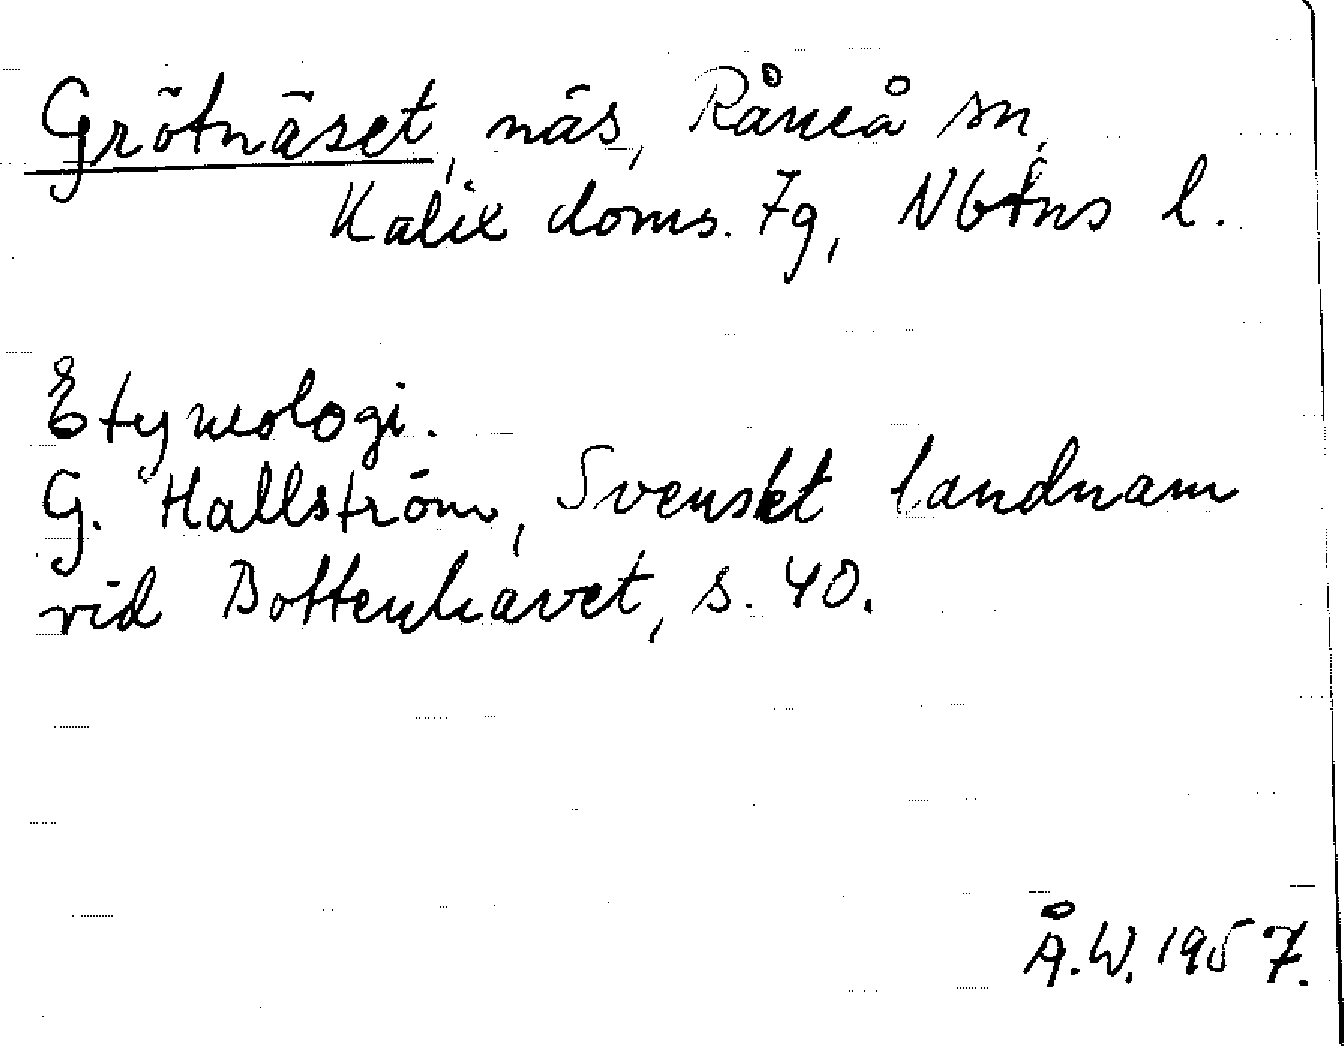 Grötnäset, näs, Råneå sn,
Kalix doms. 7g, Nbtns l.
Etymologi.
G. Hallström, Svenskt landnam
vid Bottenhavet, s. 40.
Å.W. 1957.